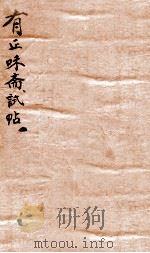 有正味斋試帖
研狗
mtoou.info